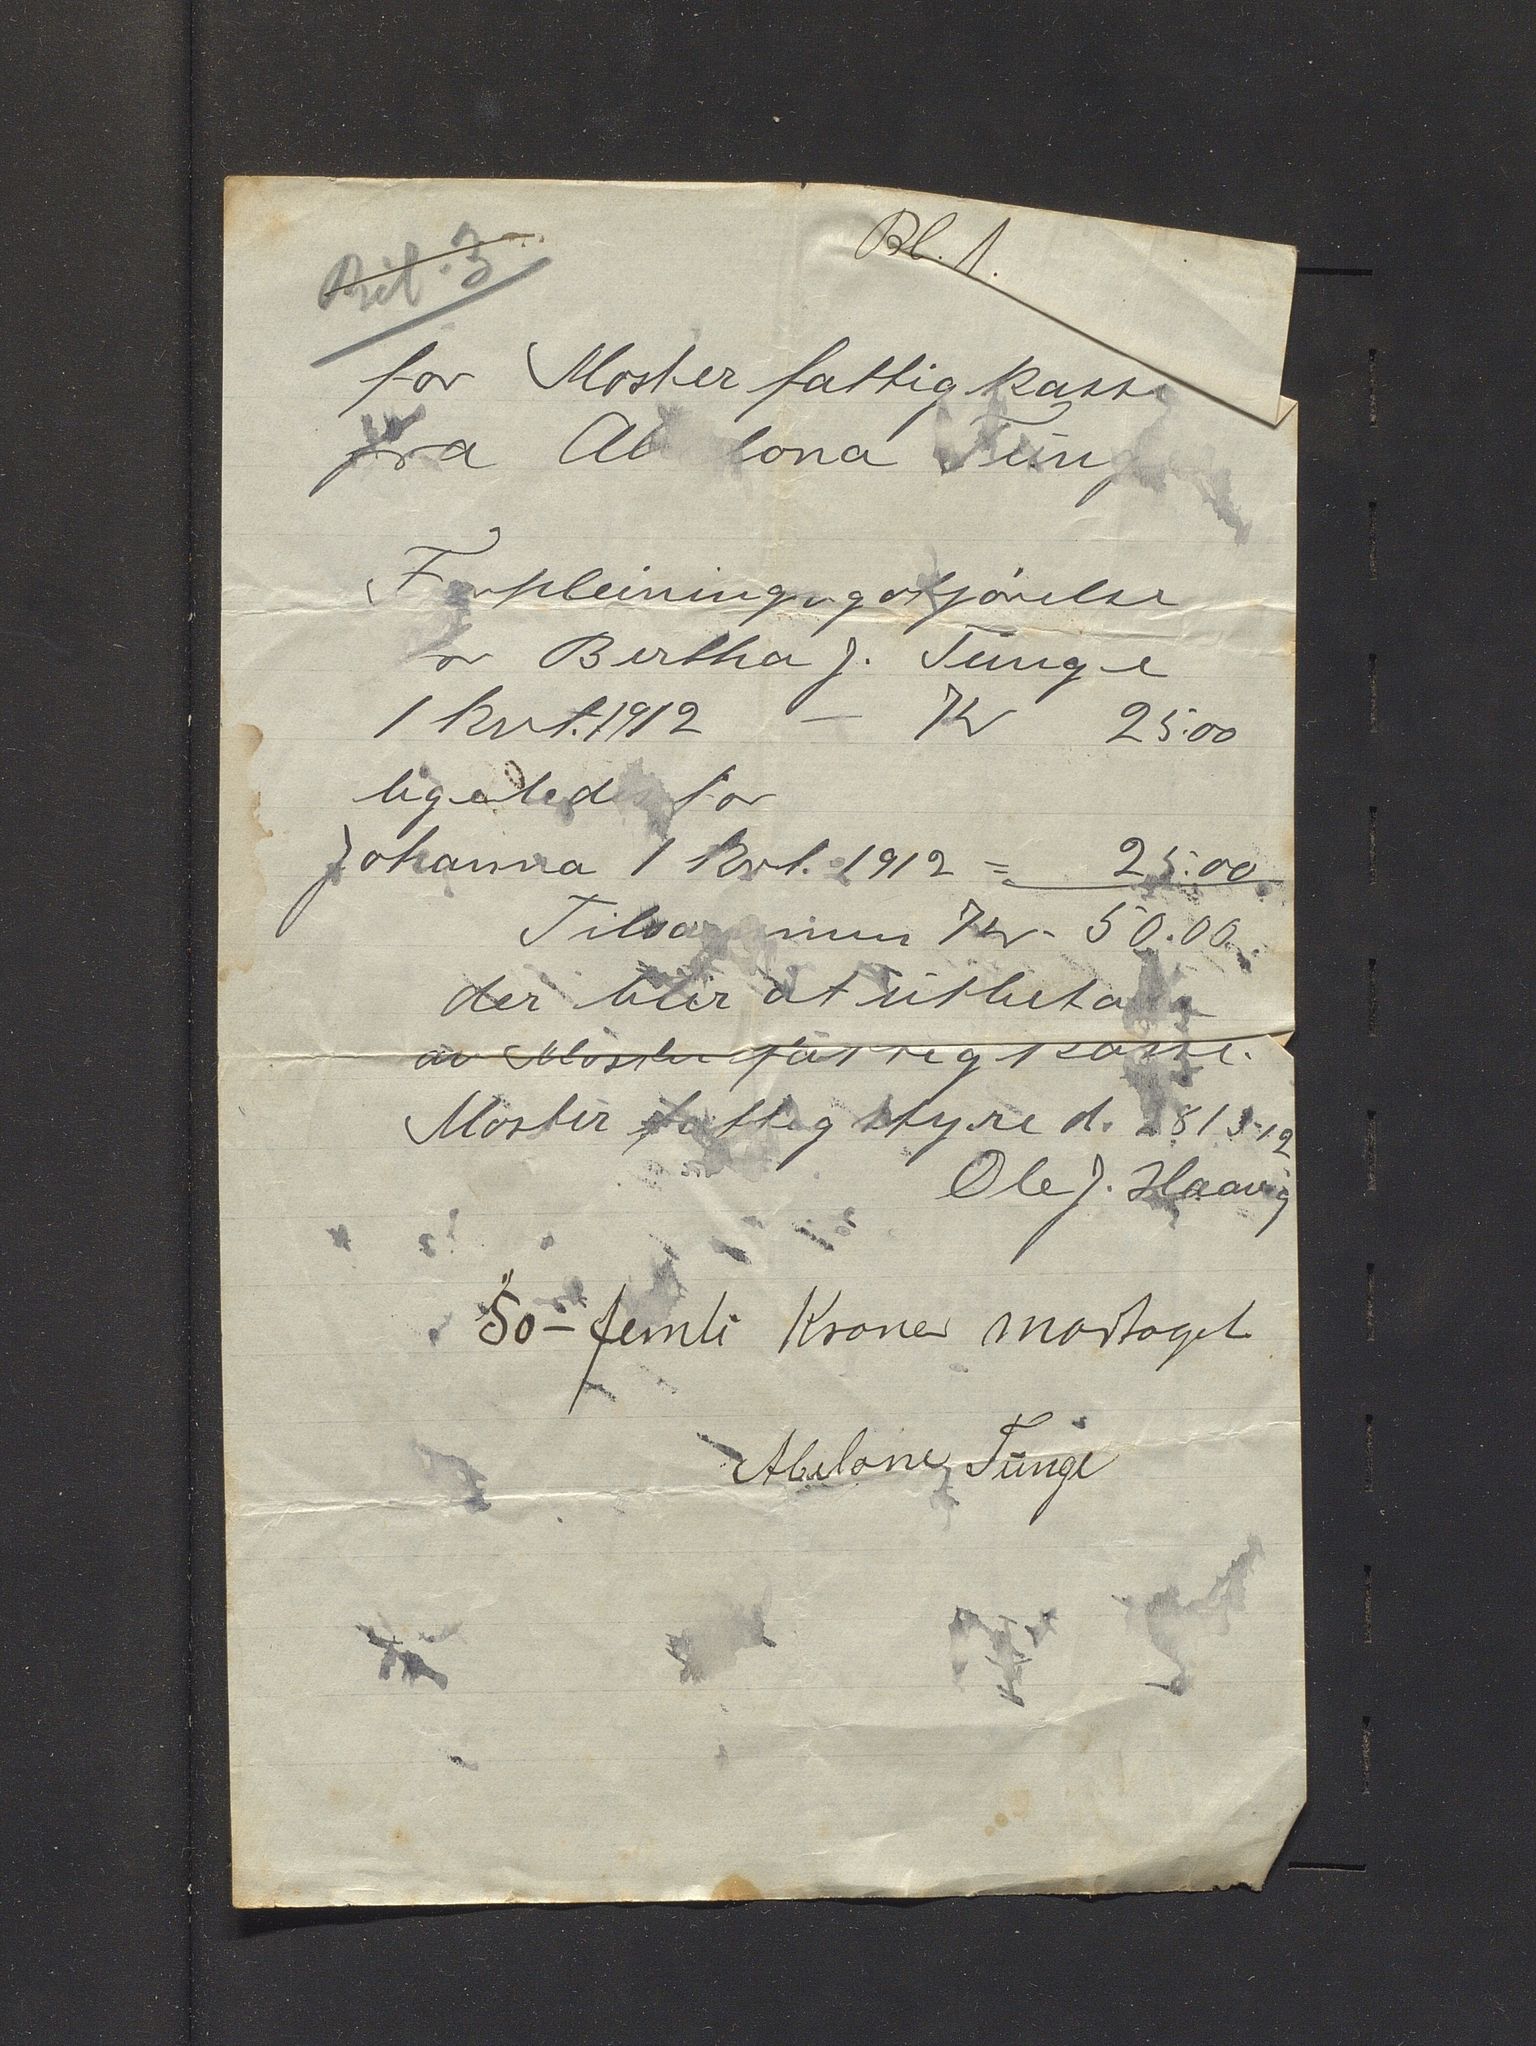 Bil. 3
Bl. 1.
for Moster fattigkasse
fra Abelona Tunge
Forpleiningsgotjørelse
for Bertha J. Tunge
1 kvt. 1912 — Kr 25.00
ligeledes for
Johanna 1 kvt. 1912 = 25.00
Tilsammen Kr - 50.00
der blir at utbetale
av Moster fattigkasse.
Moster fattigstyre d. 28/3-12
Ole J. Haavig
50 - femti Kroner mottaget
Abelone Tunge